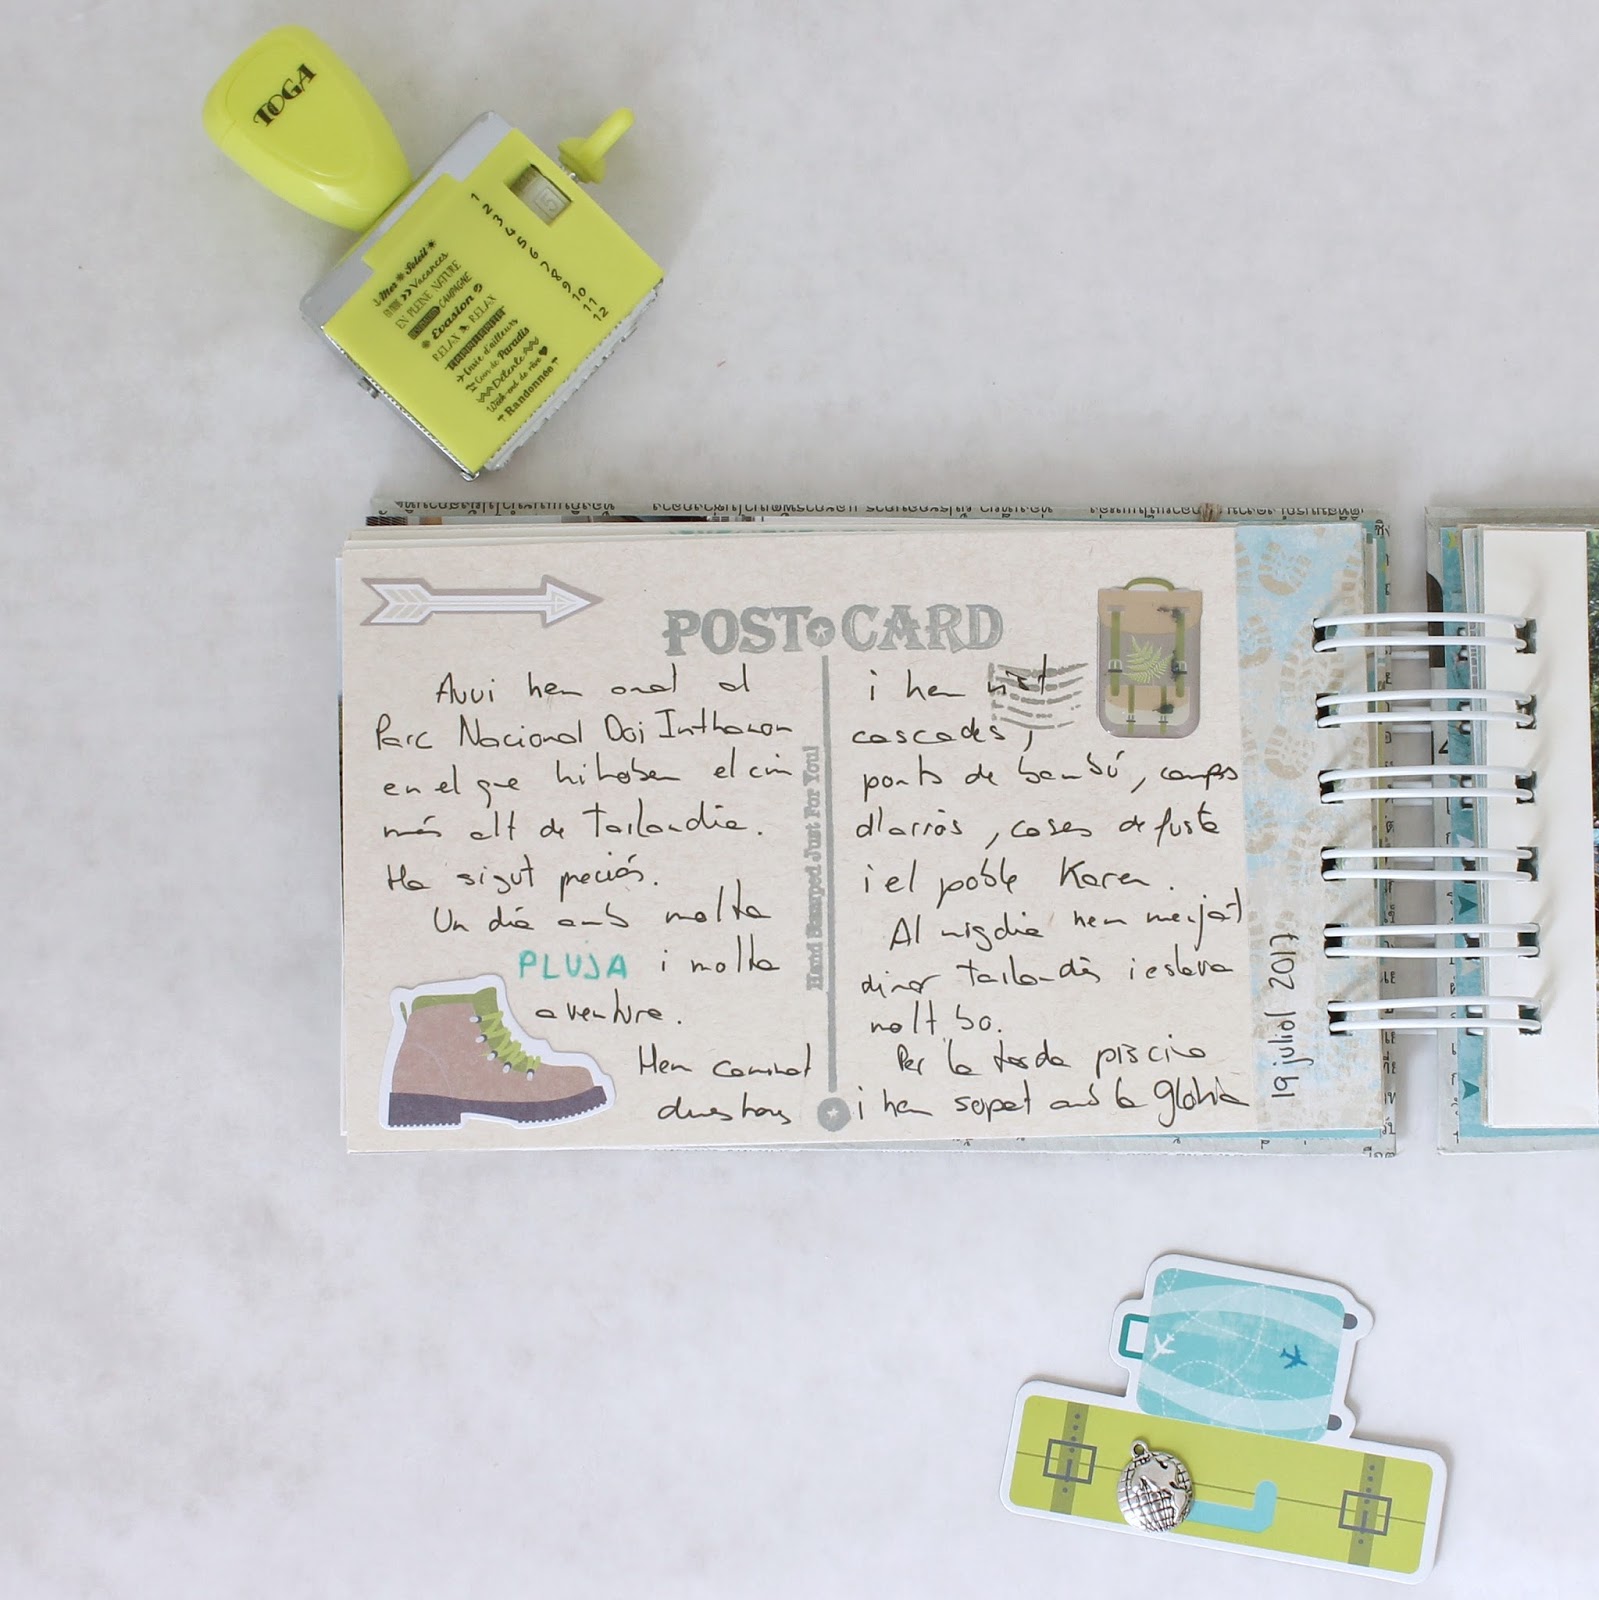 TOGA
1
2
3
4
5
6
7
8
9
10
11
12
Mer Soleil
Vacances
EN PLEINE NATURE
CAMPAGNE
Evasion
RELAX RELAX
Envie d'ailleurs
Coin de Paradis
Détente
Week-end de rêve
Randonnée
POSTCARD
Hand Stamped Just For You!
Avui hem anat al
Parc Nacional Doi Inthanon
en el que hi trobem el cim
més alt de Tailandia.
Ha sigut preciós.
Un dia amb molta
PLUJA i molta
aventura.
Hem caminat
dues hores
i hem vist
cascades,
ponts de bambú, camps
d'arròs, cases de fusta
i el poble Karen.
Al migdia hem menjat
dinar tailandès i estava
molt bo.
Per la tarda piscina
i hem sopat amb la Glòria
19 juliol 2017